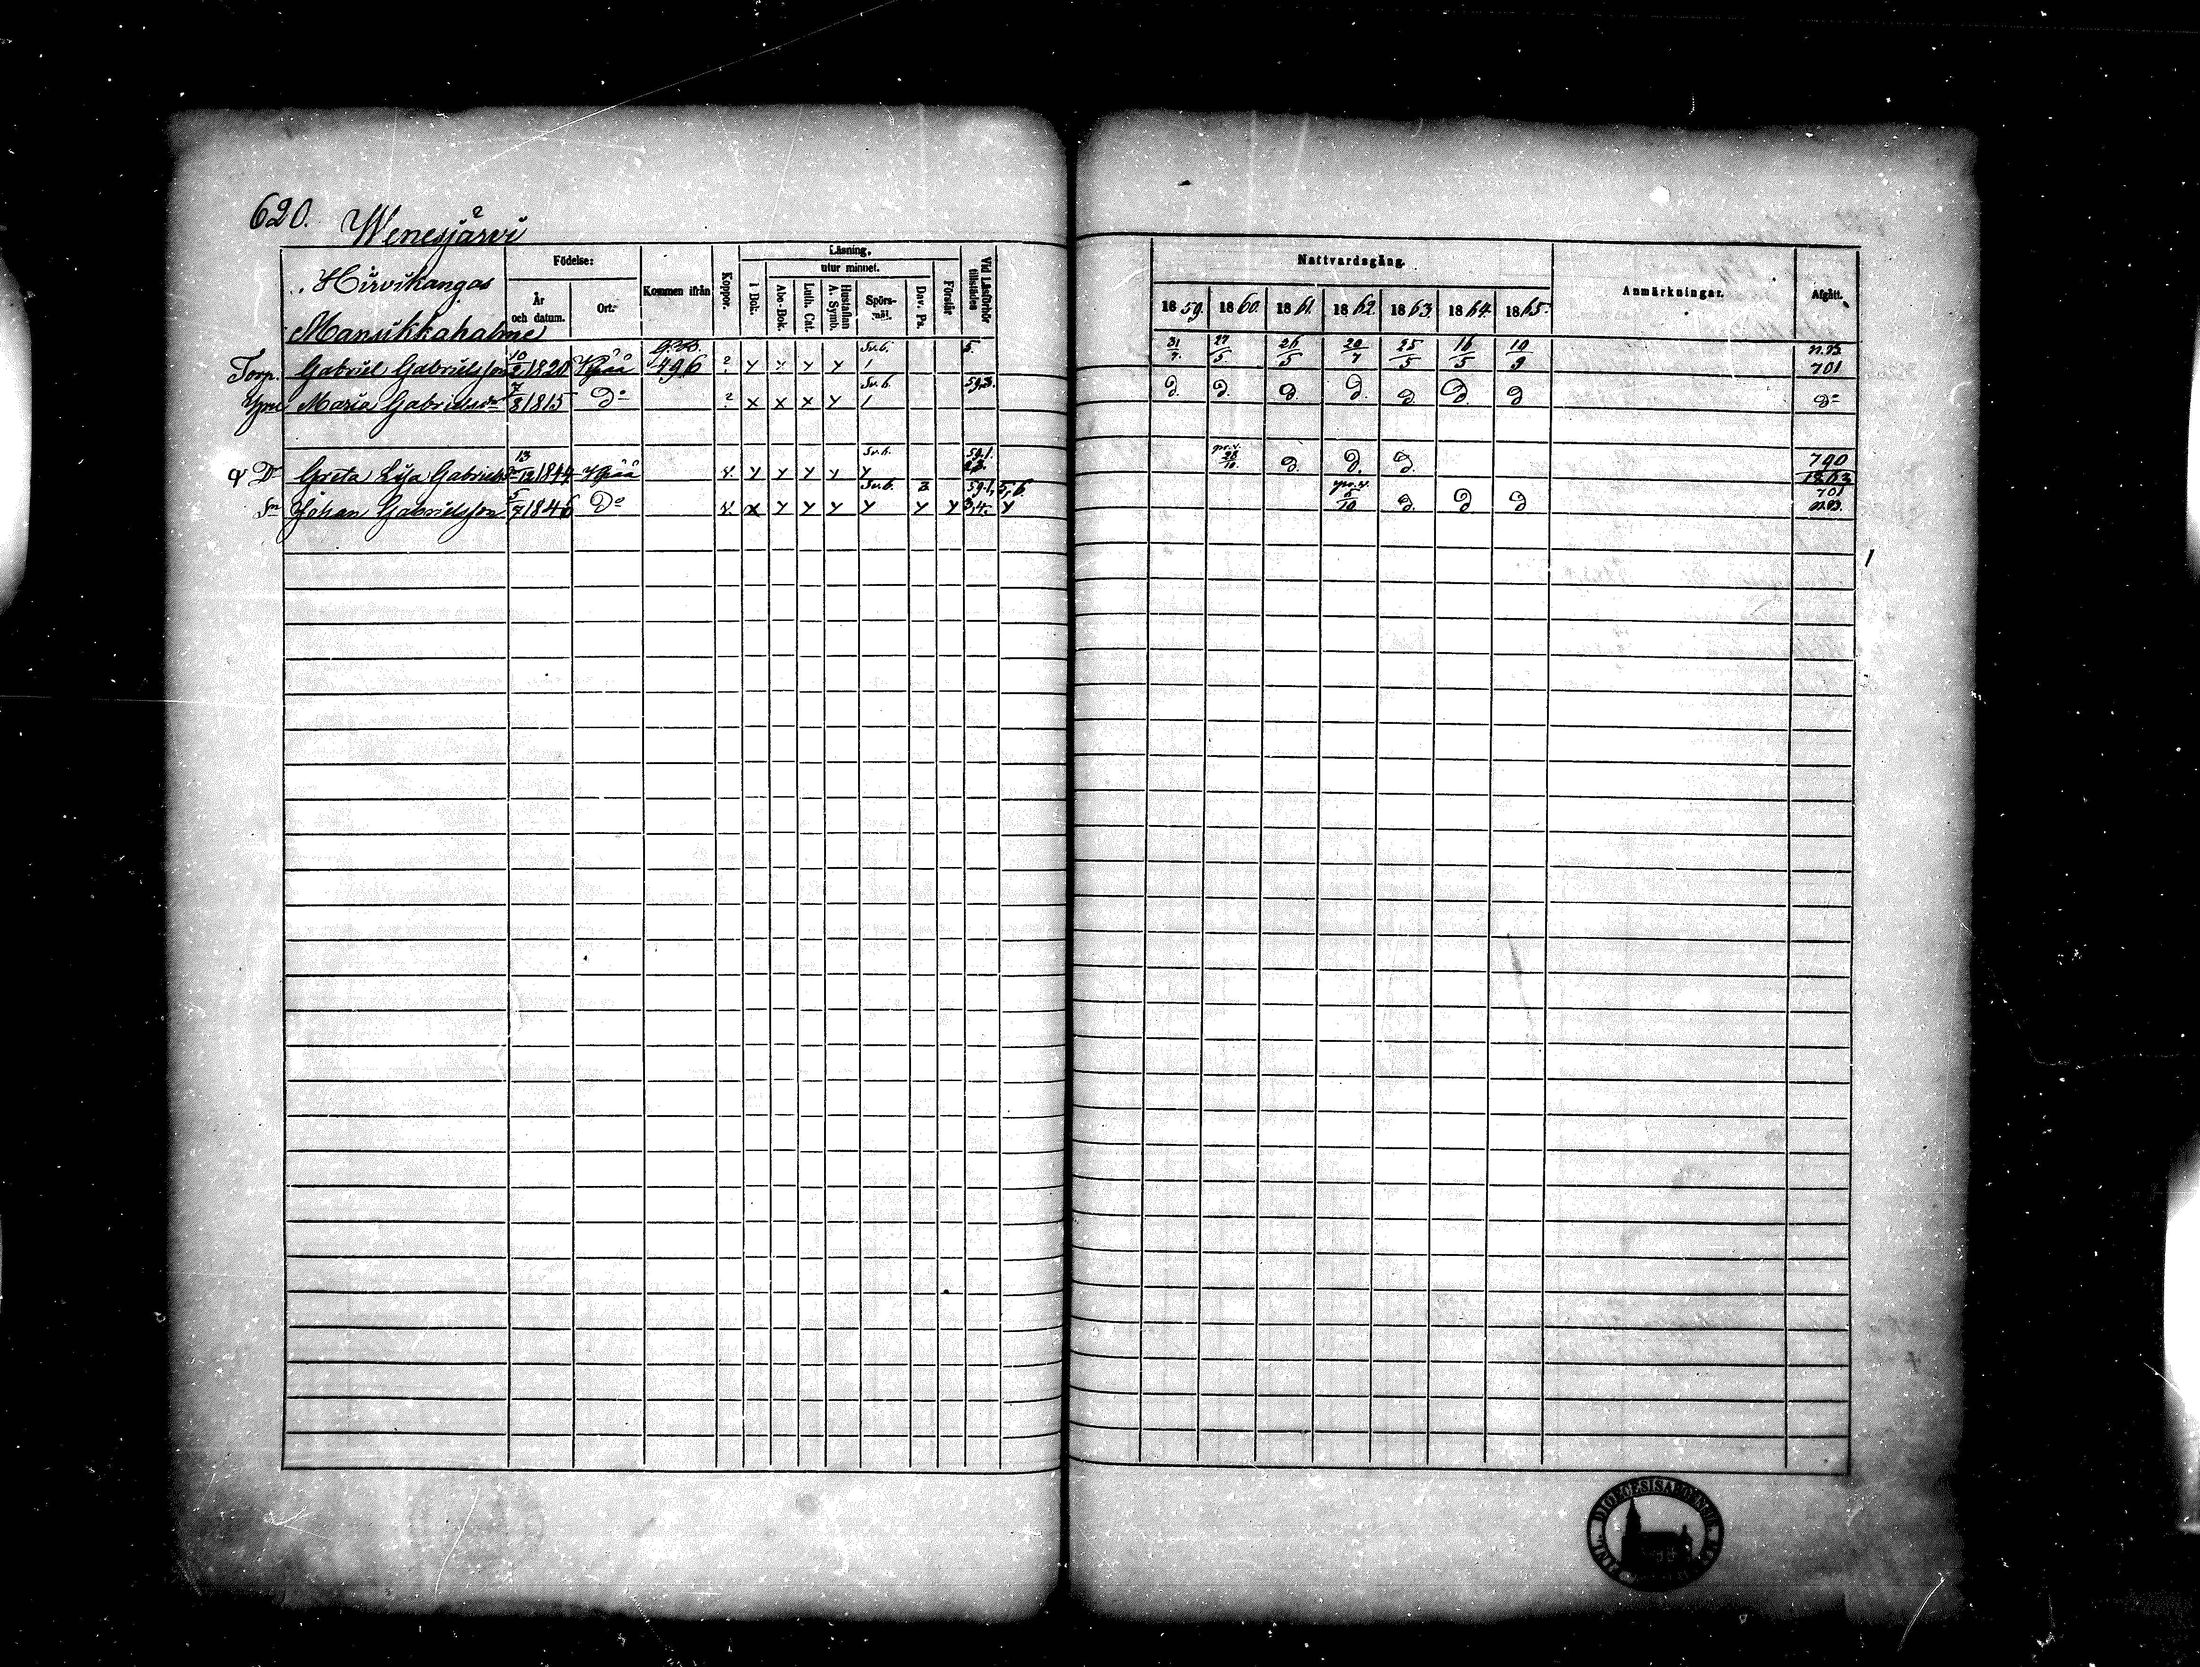 620. Wenesjärvi
Hirvikangas
Mansikkahalme
Födelse:
År och datum.
Ort.
Kommen ifrån
Koppor.
Läsning,
utur minnet.
I Bok.
Abc-Bok.
Luth. Cat.
Hustaflan A. Symb.
Spörsmål.
Dav. Ps.
Förstår
Vid Läsförhör tillstädes
Nattvardsgång.
1859. 1860. 1861. 1862. 1863. 1864. 1865.
Anmärkningar.
Afgått.
Torp. Gabriel Gabrielsson 10/2 1820 496 ? Sv.b. 5. 31/7. 27/5 26/5 20/7 25/5 16/5 10/9 n.B. 701
Maria Gabrielsson 7/8 1815 Do ? x x x Sv.b. 59.3. D. D. D. D. D. D. D Do
Dr Greta Lisa Gabrielsdr 13/12 1844 v. Sv.b. 59.1. pr.v. 28/10. D. D. D. 790 1863
Sn Johan Gabrielsson 5/7 1846 Do v. x Sv.b. 3 59.1, 5,6. 3,4. pr.v. 5/10 D. D. D 701 n.B.